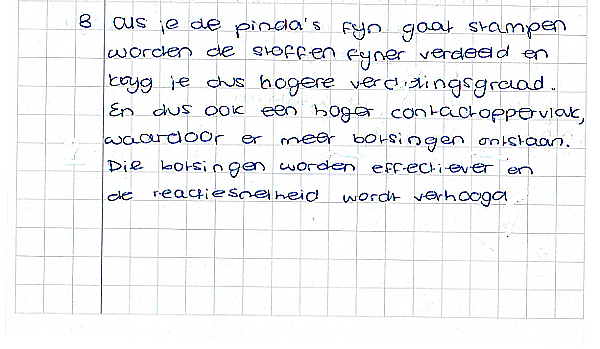 8 als je de pinda's fijn gaat stampen
worden de stoffen fijner verdeeld en
krijg je dus hogere verdelingsgraad.
En dus ook een hoger contactoppervlak,
waardoor er meer botsingen ontstaan.
Die botsingen worden effectiever en
de reactiesnelheid wordt verhoogd.